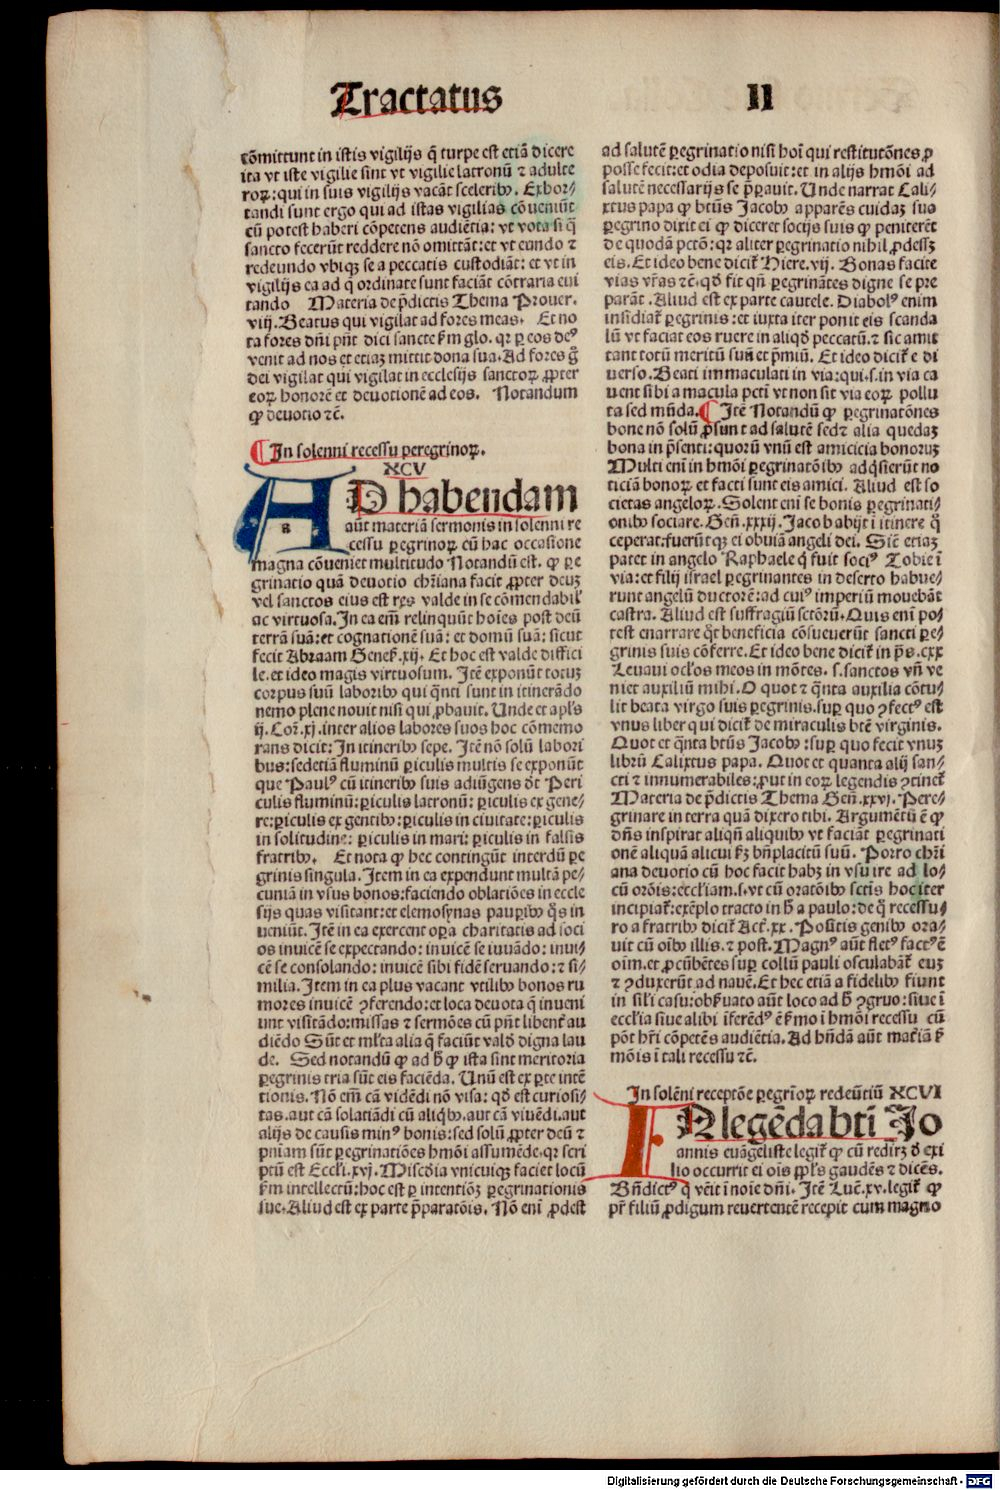 Tractatus II
cõmittunt in istis vigilijs q̃ turpe est etiã dicere
ita vt iste vigilie sint vt vigilie latronũ ⁊ adulte
roꝝ: qui in suis vigilijs vacãt sceleribꝰ. Exhor⸗
tandi sunt ergo qui ad istas vigilias cõueniũt
cũ potest haberi cõpetens audiẽtia: vt vota si q̃
sancto fecerũt reddere nõ omittãt: et vt eundo ⁊
redeundo vbiqꝫ se a peccatis custodiãt: et vt in
vigilijs ea ad q̃ ordinate sunt faciãt cõtraria eui
tando Materia de p̃dictis Thema Prouer.
viij. Beatus qui vigilat ad fores meas. Et no
ta fores dñi p̃nt dici sancte ẜm glo. qꝛ ꝑ eos deꝰ
venit ad nos et etiaꝫ mittit dona sua. Ad fores g̃
dei vigilat qui vigilat in ecclesijs sanctoꝝ ꝓpter
eoꝝ honorẽ et deuotionẽ ad eos. Notandum
ꝙ deuotio ⁊c̃.
¶ In solenni recessu peregrinoꝝ.
XCV
AD habendam
a
aũt materiã sermonis in solenni re
cessu ꝑegrinoꝝ cũ hac occasione
magna cõueniet multitudo Notandũ est. ꝙ ꝑe
grinatio quã deuotio ch̃iana facit ꝓpter deuꝫ
vel sanctos eius est res valde in se cõmendabil̛
ac virtuosa. In ea em̃ relinquũt hoĩes post deũ
terrã suã: et cognationẽ suã: et domũ suã: sicut
fecit Abraam Genes̛. xij. Et hoc est valde diffici
le. et ideo magis virtuosum. Itẽ exponũt totuꝫ
corpus suũ laboribꝰ qui q̃nti sunt in itinerãdo
nemo plene nouit nisi qui ꝓbauit. Unde et apl̃s
ij. Cor̃. xj. inter alios labores suos hoc cõmemo
rans dicit: In itineribꝰ sepe. Itẽ nõ solũ labori
bus: sed etiã fluminũ ꝑiculis multis se exponũt
que Paulꝰ cũ itineribꝰ suis adiũgens d̃t Peri
culis fluminũ: ꝑiculis latronũ: ꝑiculis ex gene⸗
re: ꝑiculis ex gentibꝰ: ꝑiculis in ciuitate: ꝑiculis
in solitudine: ꝑiculis in mari: ꝑiculis in falsis
fratribꝰ. Et nota ꝙ hec contingũt interdũ ꝑe
grinis singula. Item in ea expendunt multã pe⸗
cuniã in vsus bonos: faciendo oblatiões in eccle
sijs quas visitant: et elemosynas pauꝑibꝰ q̃s in
ueniũt. Itẽ in ea exercent oꝑa charitatis ad soci
os inuicẽ se expectando: inuicẽ se iuuãdo: inui⸗
cẽ se consolando: inuicẽ sibi fidẽ seruando: ⁊ si⸗
milia. Item in ea plus vacant vtilibꝰ bonos ru
mores inuicẽ ꝯferendo: et loca deuota q̃ inueni
unt visitãdo: missas ⁊ sermões cũ p̃nt libent̛ au
diẽdo Sũt et ml̃ta alia q̃ faciũt vald̛ digna lau
de. Sed notandũ ꝙ ad h̛ ꝙ ista sint meritoria
ꝑegrinis tria sũt eis faciẽda. Unũ est ex ꝑte intẽ
tionis. Nõ em̃ cã vidẽdi nõ visa: qd̛ est curiosi⸗
tas. aut cã solatiãdi cũ aliqbꝰ. aut cã viuẽdi. aut
alijs de causis minꝰ bonis: sed solũ ꝓpter deũ ⁊
pñiam sũt ꝑegrinatiões hm̃oi assumẽde. qꝛ scri
ptũ est Eccl̃i. xvj. Misc̃dia vnicuiqꝫ faciet locũ
ẜm intellectũ: hoc est ꝑ intentiõꝫ ꝑegrinationis
sue. Aliud est ex parte p̃paratõis. Nõ enĩ ꝓdest
ad salutẽ ꝑegrinatio nisi hoĩ qui restitutõnes ꝓ
posse fecit: et odia deposuit: et in alijs hm̃oi ad
salutẽ necessarijs se p̃ꝑauit. Unde narrat Cali⸗
xtus papa ꝙ bt̃us Jacobꝰ apparẽs cuidaꝫ suo
ꝑegrino dixit ei ꝙ diceret socijs suis ꝙ peniterẽt
de quodã pctõ: qꝛ aliter ꝑegrinatio nihil ꝓdessꝫ
eis. Et ideo bene dicit̛ Hiere. vij. Bonas facite
vias vr̃as ⁊c̃. qd̛ fit qñ ꝑegrinãtes digne se pre
parãt. Aliud est ex parte cautele. Diabolꝰ enim
insidiat̛ ꝑegrinis: et iuxta iter ponit eis scanda
lũ vt faciat eos ruere in aliqd̛ peccatũ. ⁊ sic amit
tant totũ meritũ suũ et p̃miũ. Et ideo dicit̛ e di
uerso. Beati immaculati in via: qui. s. in via ca
uent sibi a macula pcti vt non sit via eoꝝ pollu
ta sed mũda. ¶ Itẽ Notandũ ꝙ ꝑegrinatõnes
bone nõ solũ ꝓsunt ad salutẽ sed ⁊ alia quedaꝫ
bona in p̃senti: quorũ vnũ est amicicia bonoruꝫ
Multi enĩ in hm̃oi ꝑegrinatõibꝰ adq̃sierũt no
ticiã bonoꝝ et facti sunt eis amici. Aliud est so
cietas angeloꝝ. Solent eni se bonis ꝑegrinati⸗
onibꝰ sociare. Geñ. xxxij. Jacob abijt ĩ itinere q̃
ceperat: fuerũtqꝫ ei obuiã angeli dei. Sic̃ etiaꝫ
patet in angelo Raphaele q̃ fuit sociꝰ Tobie ĩ
via: et filij israel ꝑegrinantes in deserto habue⸗
runt angelũ ductorẽ: ad cuiꝰ imperiũ mouebãt
castra. Aliud est suffragiũ sctõrũ. Quis enĩ po⸗
test enarrare q̃t beneficia cõsueuerũt sancti ꝑe⸗
grinis suis cõferre. Et ideo bene dicit̛ in p̃s. cxx
Leuaui ocl̃os meos in mõtes. s. sanctos vñ ve
niet auxiliũ mihi. O quot ⁊ q̃nta auxilia cõtu⸗
lit beata virgo suis ꝑegrinis. suꝑ quo ꝯfectꝰ est
vnus liber qui dicit̛ de miraculis bt̃e virginis.
Quot et q̃nta bt̃us Jacobꝰ: suꝑ quo fecit vnuꝫ
librũ Calixtus papa. Quot et quanta alij san⸗
cti ⁊ innumerabiles: ꝓut in eoꝝ legendis ꝯtinet̛
Materia de p̃dictis Thema Geñ. xxvj. Pere⸗
grinare in terra quã dixero tibi. Argumẽtũ ẽ ꝙ
dñs inspirat aliqñ aliquibꝰ vt faciãt ꝑegrinati
onẽ aliquã alicui ẜꝫ bñplacitũ suũ. Porro ch̃i
ana deuotio cũ hoc facit habꝫ in vsu ire ad lo⸗
cũ orõis: eccl̛iam. s. vt cũ oratõibꝰ sctĩs hoc iter
incipiat̛: exẽplo tracto in h̛ a paulo: de q̃ recessu⸗
ro a fratribꝰ dicit̛ Act̛. xx. Positis genibꝰ ora⸗
uit cũ oĩbꝰ illis. ⁊ post. Magnꝰ aũt fletꝰ factꝰ ẽ
oĩm. et ꝓcũbẽtes suꝑ collũ pauli osculabãt̛ euꝫ
⁊ ꝯduxerũt ad nauẽ. Et hec etiã a fidelibꝰ fiunt
in sil̃i casu: obẜuato aũt loco ad h̛ ꝯgruo: siue ĩ
eccl̛ia siue alibi ĩferẽdꝰ ẽ ẜmo ĩ hm̃oi recessu cũ
põt hr̃i cõpetẽs audiẽtia. Ad hñdã aũt mat̛iã ẜ
mõis ĩ tali recessu ⁊c̃.
In solẽni receptõe ꝑegrĩoꝝ redeũtiũ XCVI
IN legẽda bti Jo
annis euãgeliste legit̛ ꝙ cũ redirꝫ d̛ exi
lio occurrit ei oĩs ppl̃s gaudẽs ⁊ dicẽs.
Bñdictꝰ q̃ vẽit ĩ noĩe dñi. Itẽ Luc̃. xv. legit̛ ꝙ
pr̃ filiũ ꝓdigum reuertentẽ recepit cum magno
Digitalisierung gefördert durch die Deutsche Forschungsgemeinschaft - DFG